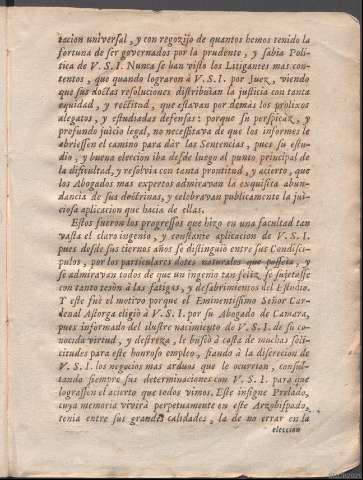 tacion universal, y con regozijo de quantos hemos tenido la
fortuna de ser governados por la prudente, y sabia Poli-
tica de V.S.I. Nunca se han visto los Litigantes mas con-
tentos, que quando lograron à V.S.I. por Juez, viendo
que sus doctas resoluciones distribuìan la justicia con tanta
equidad, y rectitud, que estavan por demàs los prolixos
alegatos, y estudiadas defensas: porque su perspicàz, y
profundo juicio legal, no necessitava de que los informes le
abriessen el camino para dàr las Sentencias, pues su estu-
dio, y buena eleccion iba desde luego al punto principal de
la dificultad, y resolvia con tanta prontitud, y acierto, que
los Abogados mas expertos admiravan la exquisita abun-
dancia de sus doctrinas, y celebravan publicamente la jui-
ciosa aplicacion que hacia de ellas.
Estos fueron los progressos que hizo en una facultad tan
vasta el claro ingenio, y constante aplicacion de V.S.I.
pues desde sus tiernos años se distinguiò entre sus Condisci-
pulos, por los particulares dotes naturales que posseìa, y
se admiravan todos de que un ingenio tan feliz se sujetasse
con tanto tesòn à las fatigas, y desabrimientos del Estudio.
Y este fuè el motivo porque el Eminentissimo Señor Car-
denal Astorga eligiò à V.S.I. por su Abogado de Camara,
pues informado del ilustre nacimiento de V.S.I. de su co-
nocida virtud, y destreza, le buscò à costa de muchas soli-
citudes para este honroso empleo, fiando à la discrecion de
V.S.I. los negocios mas arduos que le ocurrian, consul-
tando siempre sus determinaciones con V.S.I. para que
lograssen el acierto que todos vimos. Este insigne Prelado,
cuya memoria vivirà perpetuamente en este Arzobispado,
tenia entre sus grandes calidades, la de no errar en la
eleccion